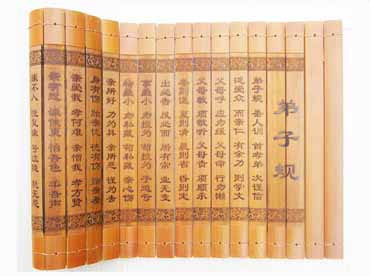 弟子规
弟子规 圣人训 首孝弟 次谨信
泛爱众 而亲仁 有余力 则学文
父母呼 应勿缓 父母命 行勿懒
父母教 须敬听 父母责 须顺承
冬则温 夏则清 晨则省 昏则定
出必告 反必面 居有常 业无变
事虽小 勿擅为 苟擅为 子道亏
物虽小 勿私藏 苟私藏 亲心伤
亲所好 力为具 亲所恶 谨为去
身有伤 贻亲忧 德有伤 贻亲羞
亲爱我 孝何难 亲憎我 孝方贤
亲有过 谏使更 怡吾色 柔吾声
谏不入 悦复谏 号泣随 挞无怨